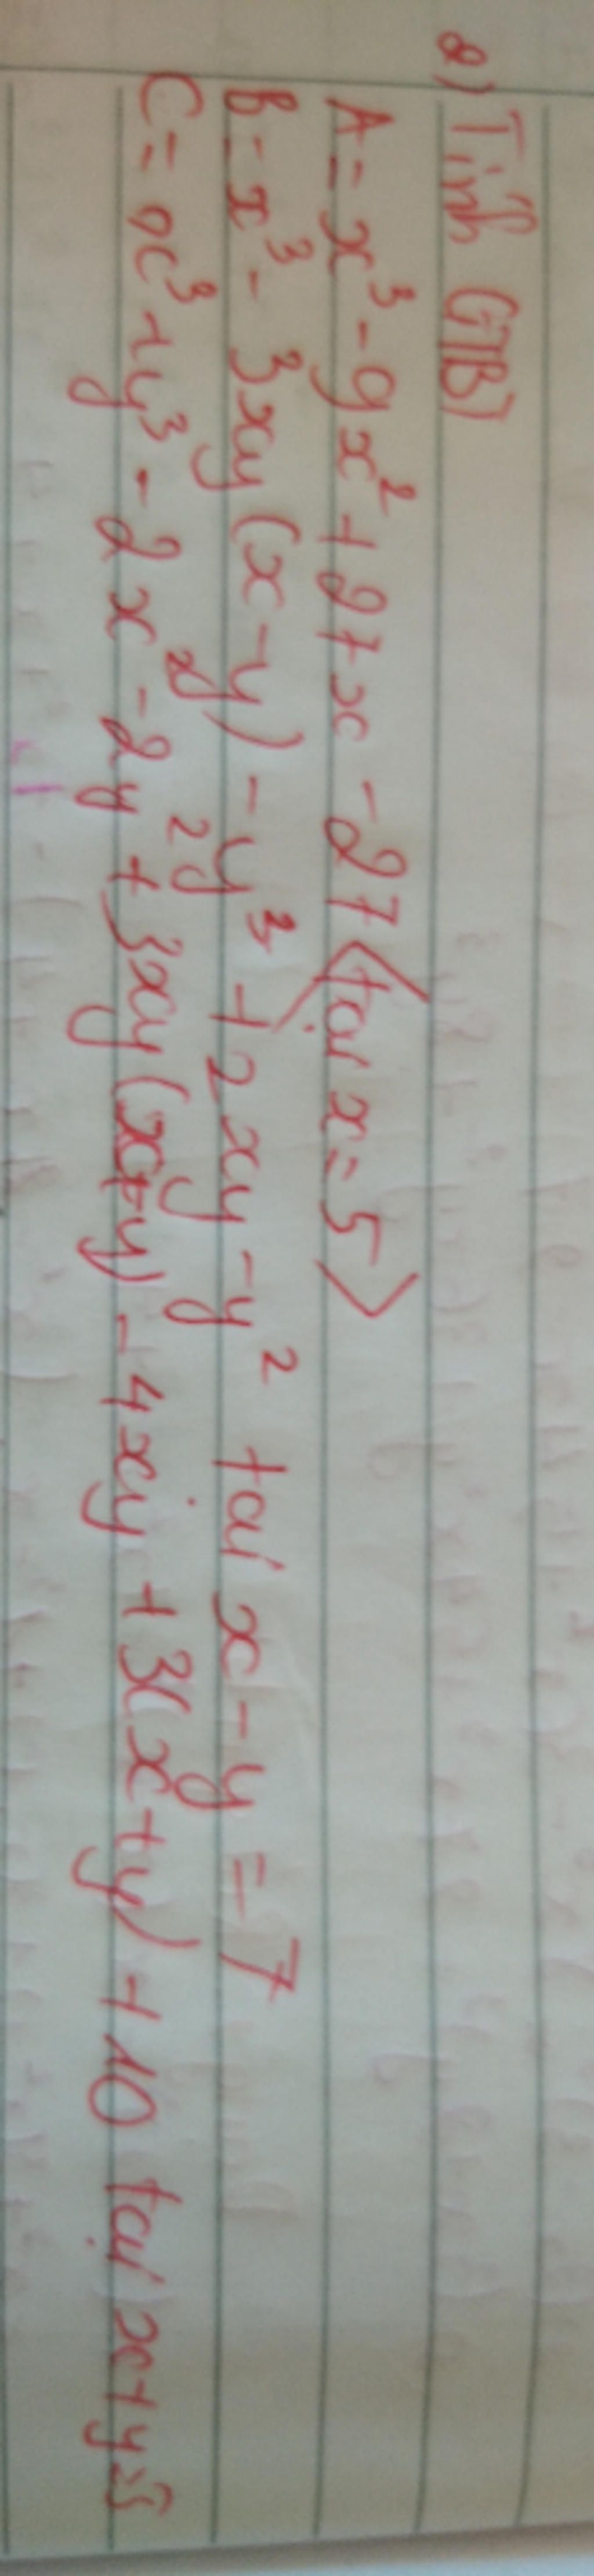 2) Tính GTBT
A = x³ - 9x² + 27x - 27 <tại x = 5>
B = x³ - 3xy(x-y) - y³ + 2xy - y² tại x - y = 7
C = x³ + y³ - 2x² - 2y² + 3xy(x+y) - 4xy + 3(x+y) + 10 tại x+y=5